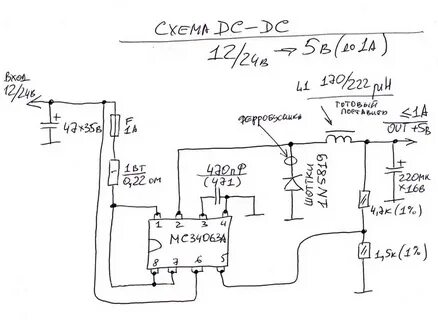 СХЕМА DC-DC
12/24в → 5В (до 1А)
ВХОД
12/24в
+
47×35В
F
1А
1ВТ
0,22 ом
470пФ
(471)
L1 170/222 μH
готовый
ферробусинка
ШОТТКИ
1N5819
≤1А
OUT +5в
+
220мк
×16В
4,7к (1%)
1,5к (1%)
1 2 3 4
MC34063A
8 7 6 5